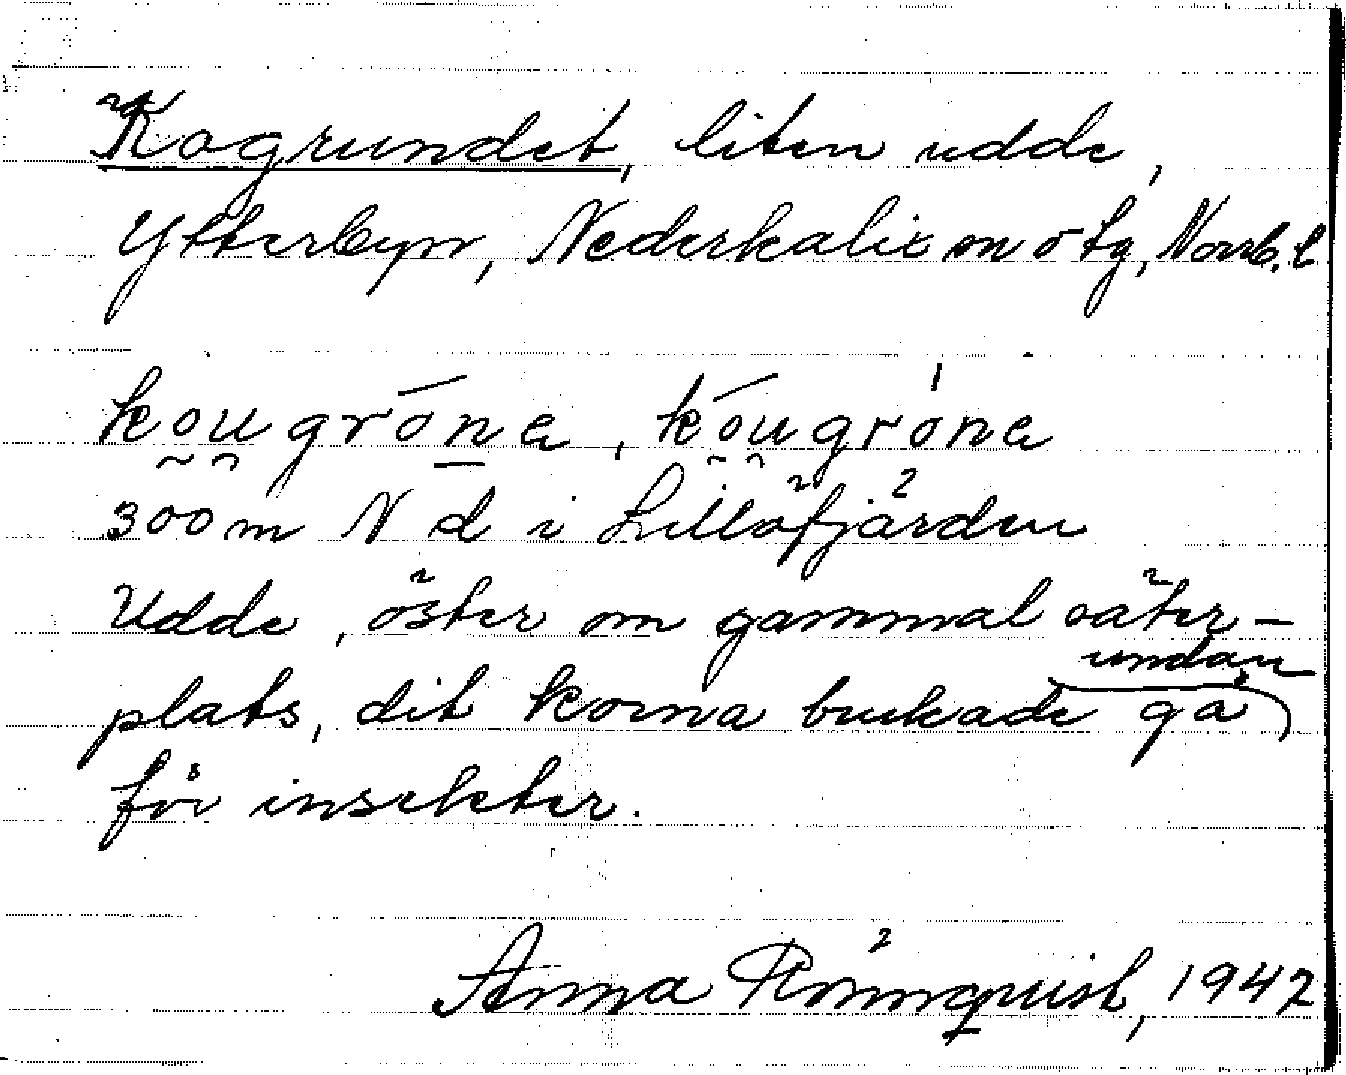 Kogrundet, liten udde,
Ytterbyn, Nederkalix sn o tg, Norrb. l
kougróna, kóugróna
300 m N d i Lillöfjärden
Udde, öster om gammal säter-
plats, dit korna brukade gå undan
för insekter.
Anna Rönnquist, 1942